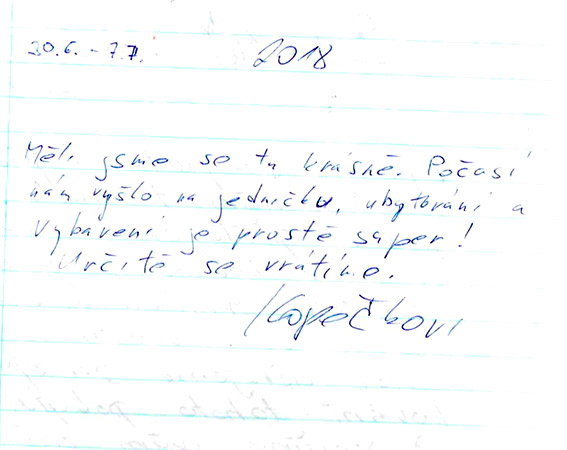 30.6. - 7.7. 2018
Měli jsme se tu krásně. Počasí
nám vyšlo na jedničku, ubytování a
vybavení je prostě super!
Určitě se vrátíme.
Kopečkovi